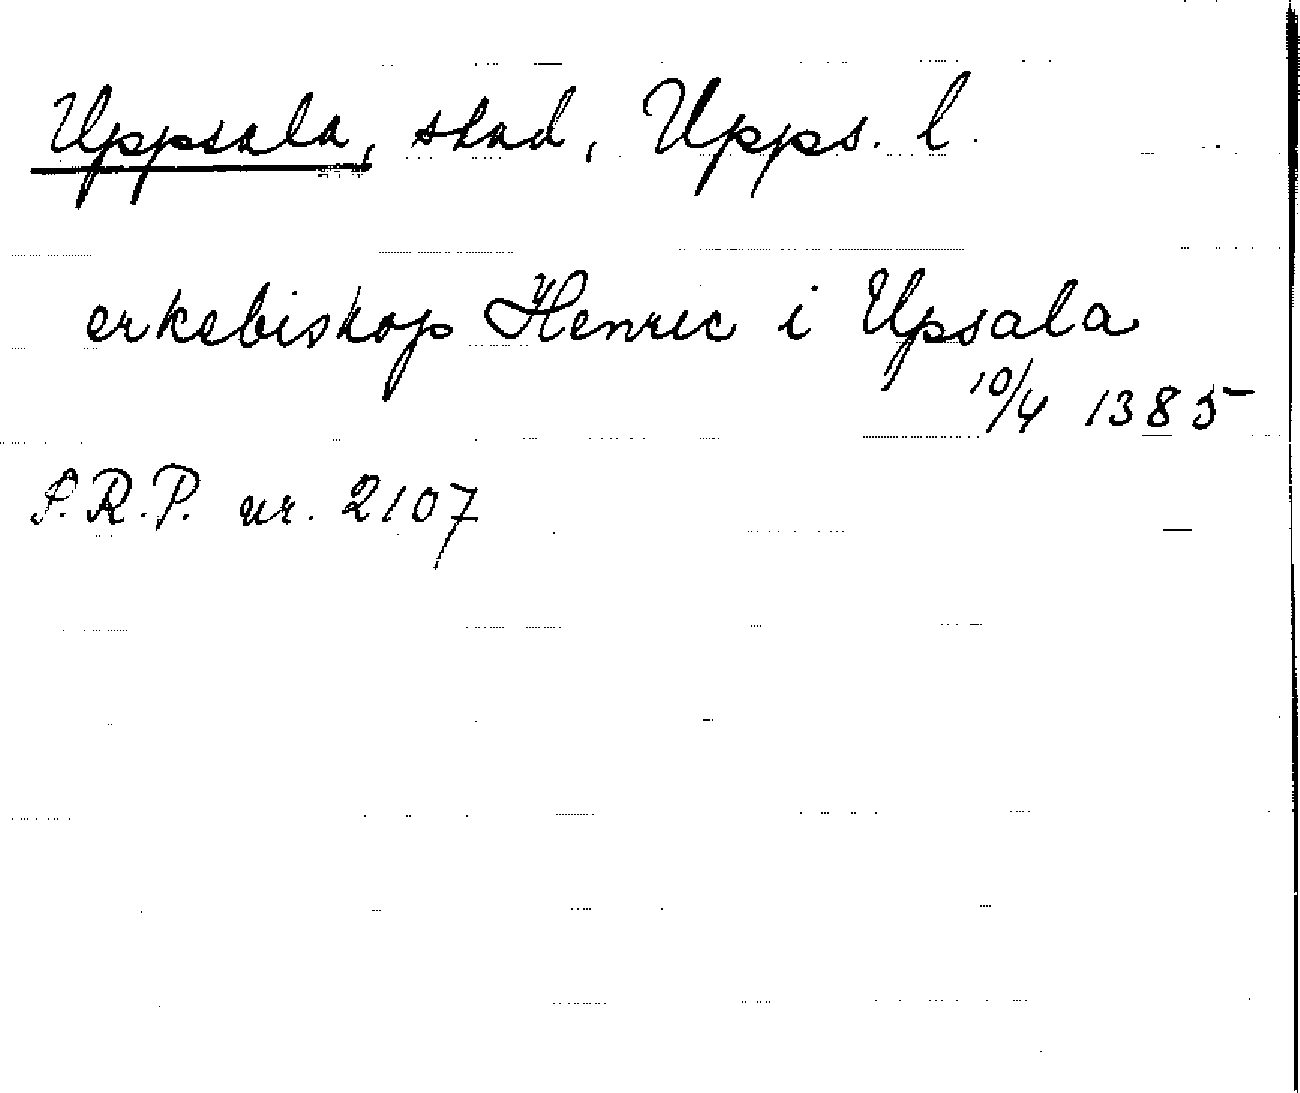 Uppsala, stad, Upps. l.
erkebiskop Henric i Upsala
10/4 1385
S.R.P. nr. 2107